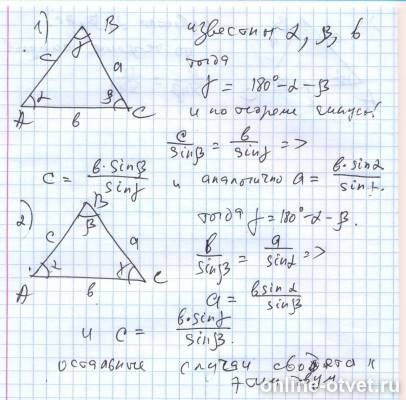 1)
B
γ
c
a
известны α, β, b
тогда
γ = 180° - α - β
и по теореме синусов:
α
β
A
b
C
c/sinβ = b/sinγ =>
c = b·sinβ/sinγ и аналогично a = b·sinα/sinγ
2)
B
β
c
a
тогда γ = 180° - α - β.
b/sinβ = a/sinα =>
α
γ
A
b
C
a = b sinα/sinβ
и c = b·sinγ/sinβ.
остальные случаи сводятся к
этим двум
online-otvet.ru